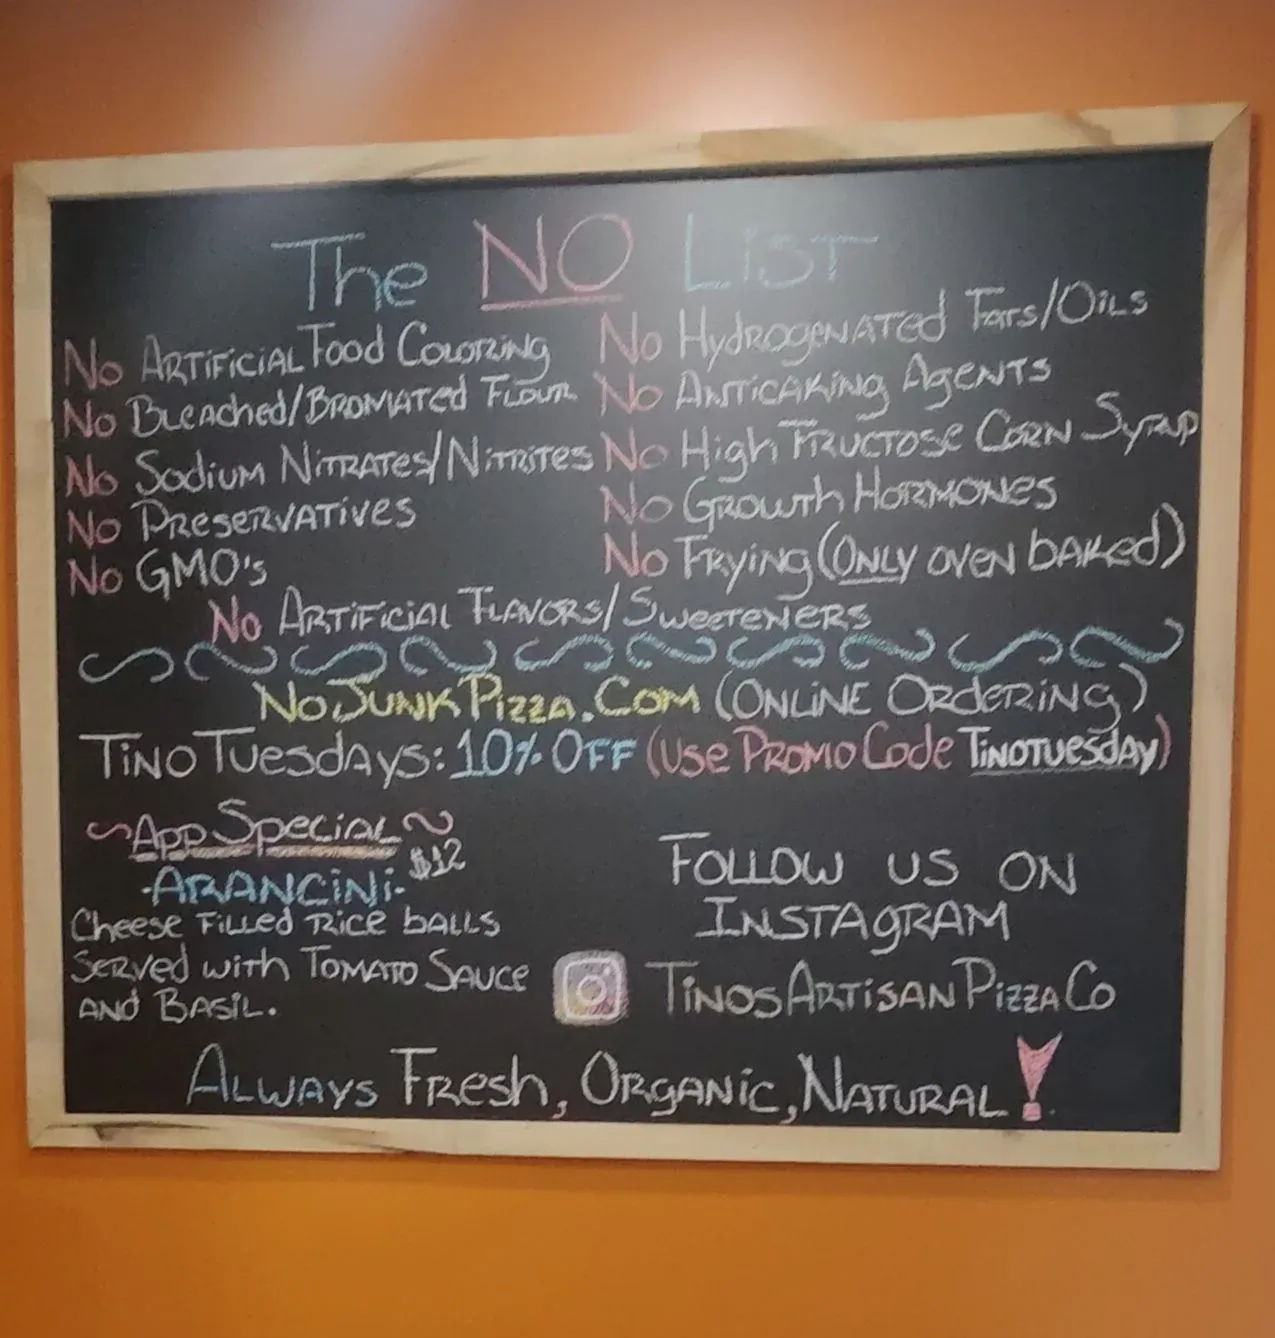 The NO List
No Artificial Food Coloring
No Bleached/Bromated Flour
No Sodium Nitrates/Nitrites
No Preservatives
No GMO's
No Hydrogenated Fats/Oils
No Anticaking Agents
No High Fructose Corn Syrup
No Growth Hormones
No Frying (Only oven baked)
No Artificial Flavors/Sweeteners
NoJunkPizza.Com (Online Ordering)
Tino Tuesdays: 10% Off (Use Promo Code TinoTuesday)
~App Special~
$12
-Arancini-
Cheese Filled Rice balls
Served with Tomato Sauce
and Basil.
Follow us on
Instagram
TinosArtisanPizzaCo
Always Fresh, Organic, Natural!